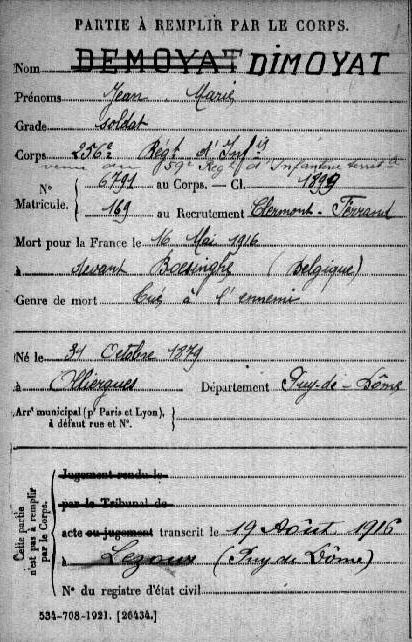 PARTIE À REMPLIR PAR LE CORPS.
Nom DEMOYAT DIMOYAT
Prénoms Jean Marie
Grade soldat
Corps 256e Regt d'Infie
venu du 59e Regt d'Infanterie territle
N° Matricule. { 6791 au Corps. — Cl. 1899
169 au Recrutement Clermont-Ferrand
Mort pour la France le 16 Mai 1916
à devant Boesinghe (Belgique)
Genre de mort Tué à l'ennemi
Né le 31 Octobre 1879
à Olliergues Département Puy-de-Dôme
Arrt municipal (pr Paris et Lyon), à défaut rue et N°. }
Cette partie n'est pas à remplir par le Corps.
Jugement rendu le
par le Tribunal de
acte ou jugement transcrit le 19 Août 1916
à Lezoux (Puy de Dôme)
N° du registre d'état civil
534-708-1921. [26434.]